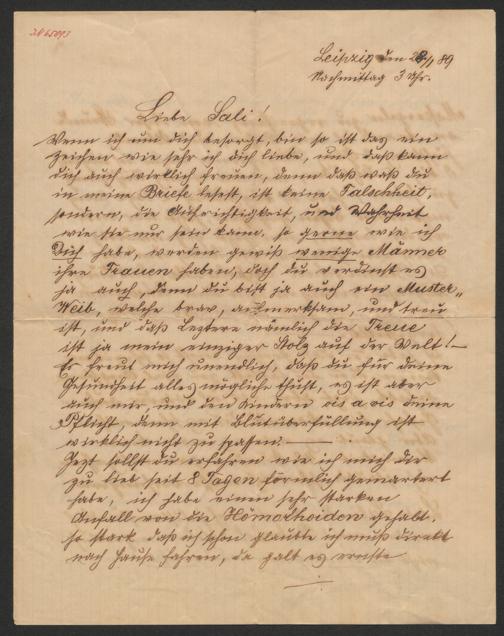 Leipzig den 28/1 89
Nachmittag 3 Uhr.
Liebe Sali!
Wenn ich um dich besorgt, bin so ist das ein
Zeichen wie sehr ich dich liebe, und daß kann
dich auch wirklich freuen, denn daß waß du
in meine Briefe lesest, ist keine Falschheit,
sondern, die Aufrichtigkeit, und Wahrheit
wie sie nur sein kann, so gerne wie ich
Dich habe, werden gewiß wenige Männer
ihre Frauen haben, doch du verdienst es
ja auch, denn du bist ja auch ein Muster-
Weib, welche brav, aufmerksam, und treu
ist, und daß Leztere nämlich die Treue
ist ja mein einziger Stolz auf der Welt! —
Es freut mich unendlich, daß du für deine
Gesundheit alles mögliche thust, es ist aber
auch mir und den Kindern vis a vis deine
Pflicht, denn mit Blutüberfüllung ist
wirklich nicht zu spassen. —
Jezt sollst du erfahren wie ich mich dir
zu lieb seit 8 Tagen förmlich gemartert
habe, ich habe einen sehr starken
Anfall von die Hömerhoiden gehabt,
so stark daß ich schon glaubte ich muß direkt
nach Hause fahren, da galt es ernste